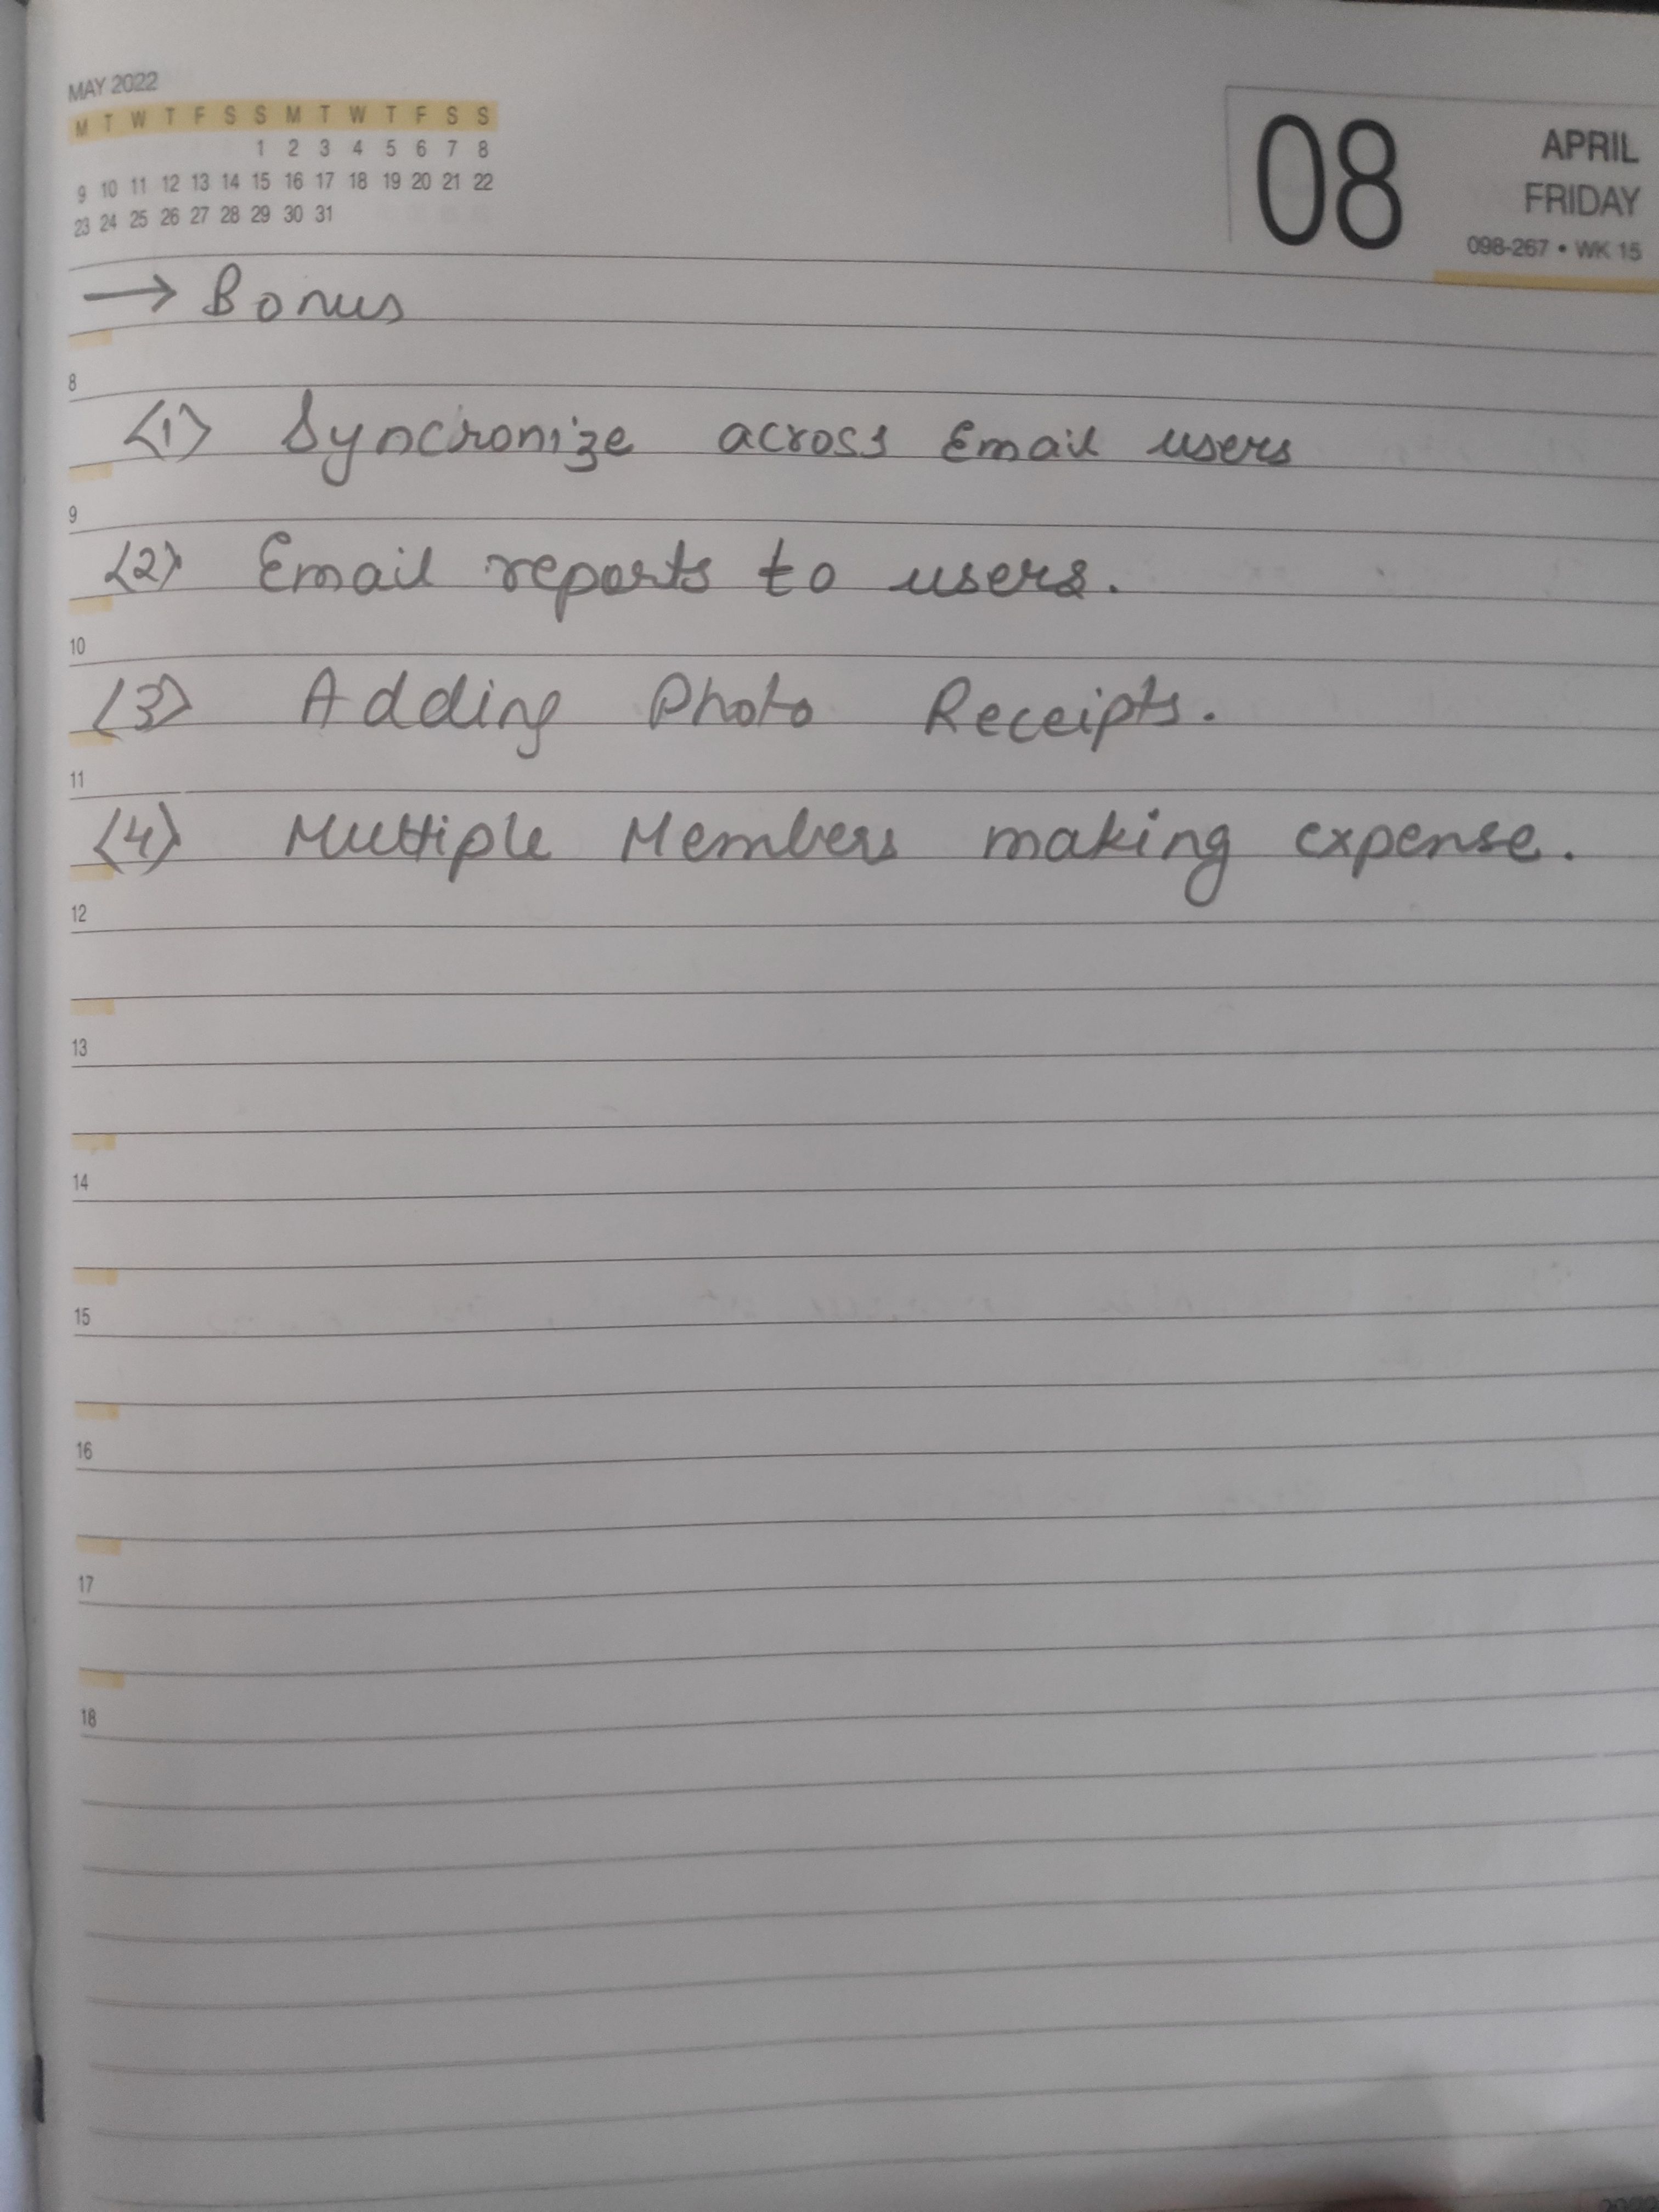 MAY 2022
M T W T F S S M T W T F S S
1 2 3 4 5 6 7 8
9 10 11 12 13 14 15 16 17 18 19 20 21 22
23 24 25 26 27 28 29 30 31
08
APRIL
FRIDAY
098-267 • WK 15
→ Bonus
8
<1> Syncronize across Email users
9
<2> Email reports to users.
10
<3> Adding Photo Receipts.
11
<4> Multiple Members making expense.
12
13
14
15
16
17
18